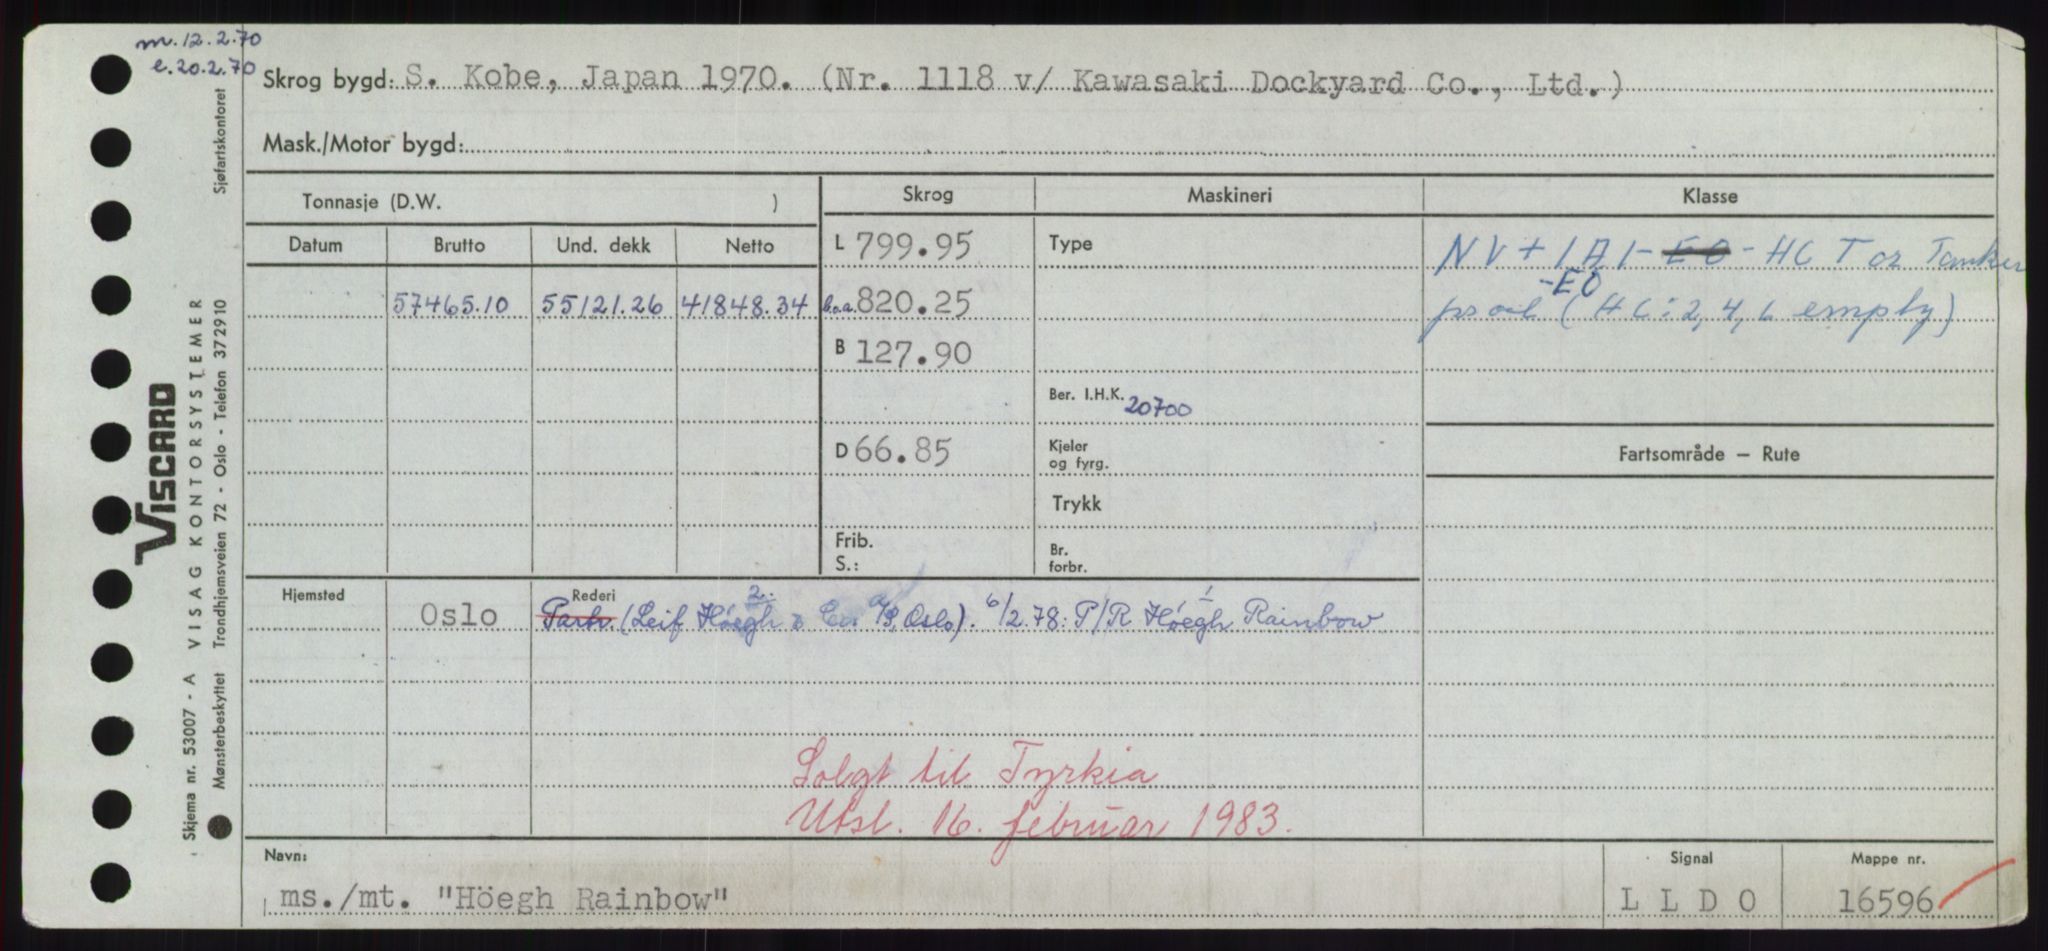 m. 12.2.70
e. 20.2.70
Skrog bygd: S. Kobe, Japan 1970. (Nr. 1118 v/ Kawasaki Dockyard Co., Ltd.)
Mask./Motor bygd:
Tonnasje (D.W. )
Datum Brutto Und. dekk Netto
57465.10 55121.26 41848.34
Skrog
L 799.95
b.o.a. 820.25
B 127.90
D 66.85
Frib.
S.:
Maskineri
Type
Ber. I.H.K. 20700
Kjeler
og fyrg.
Trykk
Br.
forbr.
Klasse
NV + 1A1 - EO - HC T or Tanker
-EO
(HC: 2, 4, 6 empty)
Fartsområde — Rute
Hjemsted
Oslo
Rederi
2. 1
Partr. (Leif Höegh & Co. A/S, Oslo). 6/2.78: P/R Höegh Rainbow
Solgt til Tyrkia
Utsl. 16. februar 1983.
Navn:
ms./mt. "Höegh Rainbow"
Signal
L L D O
Mappe nr.
16596
VISCARD
Skjema nr. 53007 - A VISAG KONTORSYSTEMER
Mønsterbeskyttet Trondhjemsveien 72 - Oslo - Telefon 372910
Sjøfartskontoret